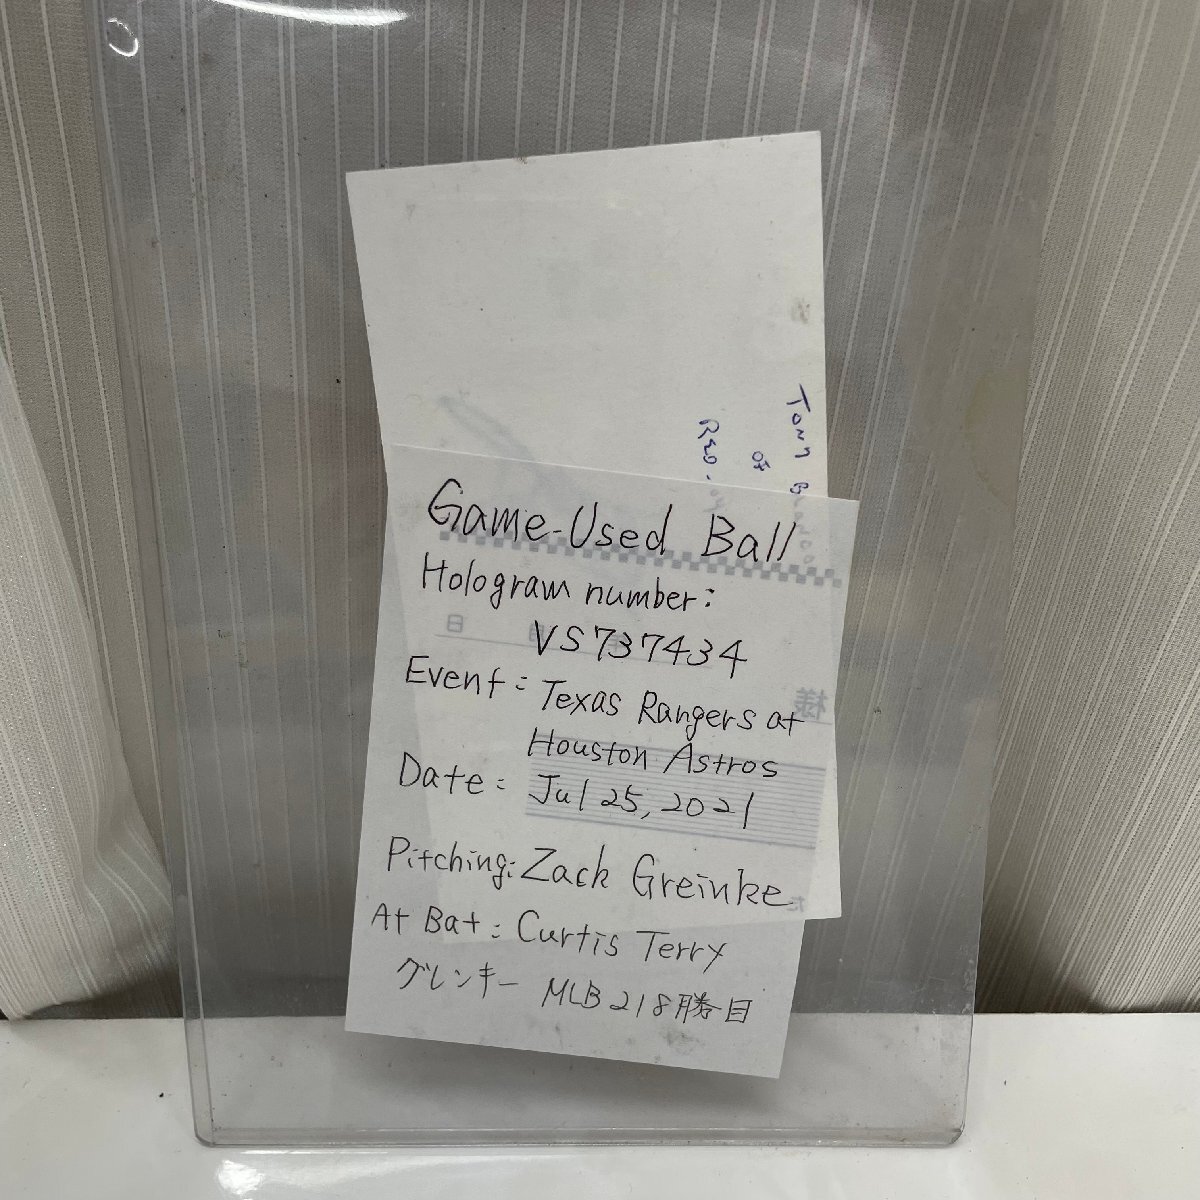 TONY
OF
RED
Game-Used Ball
Hologram number:
VS737434
Event: Texas Rangers at
Houston Astros
Date: Jul 25, 2021
Pitching: Zack Greinke
At Bat: Curtis Terry
グレンキー MLB 218勝目
日
月
様